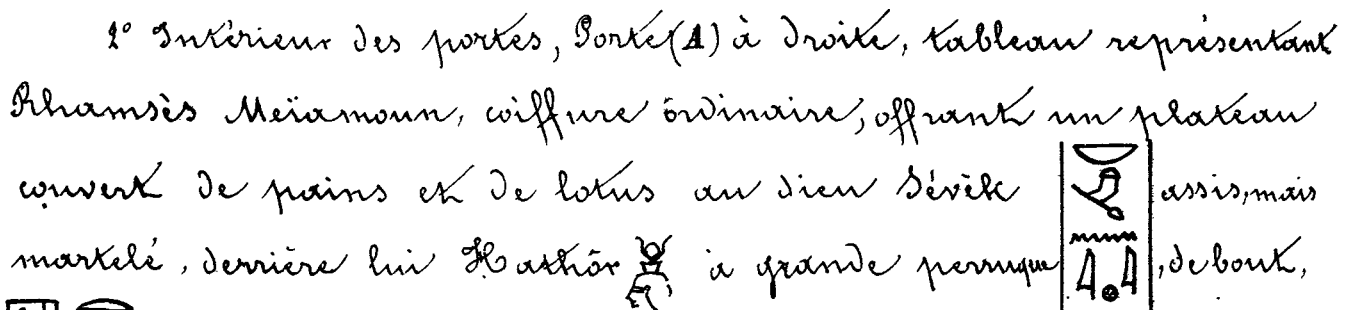 1° Intérieur des portes, Porte (A) à droite, tableau représentant
Rhamsès Meïamoun, coiffure ordinaire, offrant un plateau
couvert de pains et de lotus au dieu Sévèk assis, mais
martelé, derrière lui Hathôr à grande perruque, debout,